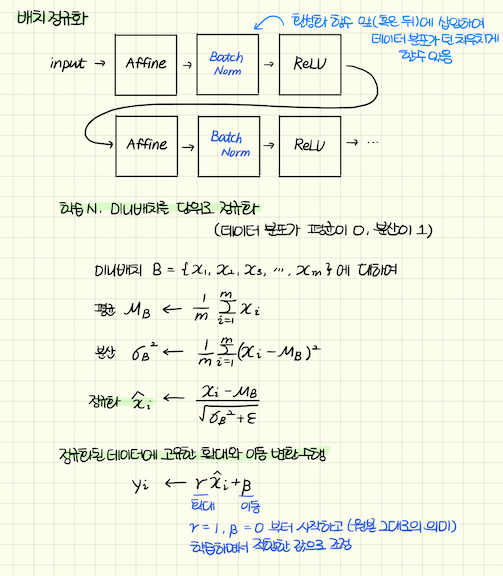 배치 정규화
활성화 함수 앞(혹은 뒤)에 삽입하여
데이터 분포가 덜 치우치게
할 수 있음
input → Affine → Batch Norm → ReLU
Affine → Batch Norm → ReLU → ...
학습 시, 미니배치를 단위로 정규화
(데이터 분포가 평균이 0, 분산이 1)
미니배치 B = {x₁, x₂, x₃, ..., xₘ}에 대하여
평균 μ_B ← 1/m Σ_{i=1}^{m} xᵢ
분산 σ_B² ← 1/m Σ_{i=1}^{m} (xᵢ - μ_B)²
정규화 x̂ᵢ ← (xᵢ - μ_B) / √(σ_B² + ε)
정규화된 데이터에 고유한 확대와 이동 변환 수행
yᵢ ← γx̂ᵢ + β
확대 이동
γ = 1, β = 0 부터 시작하고 (원본 그대로의 의미)
학습하면서 적합한 값으로 조정